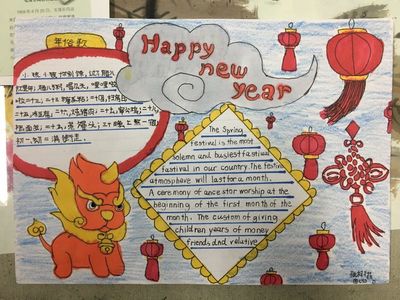 年俗歌
小孩小孩你别馋,过了腊八
就是年,腊八粥,喝几天,哩哩啦
二十三,二十三糖瓜粘;二十四,扫房日
二十五,炸豆腐;二十六,炖猪肉;二十七,宰公鸡;二十八,
把面发;二十九,蒸馒头;三十晚上熬一宿
初一初二满街走。
Happy
new
year
The Spring
festival is the most
solemn and busiest festival
fastival in our country. The festive
atmosphere will last for a month.
A ceremony of ancestor worship at the
beginning of the first month of the
month. The custom of giving
children years of money
friends and relative